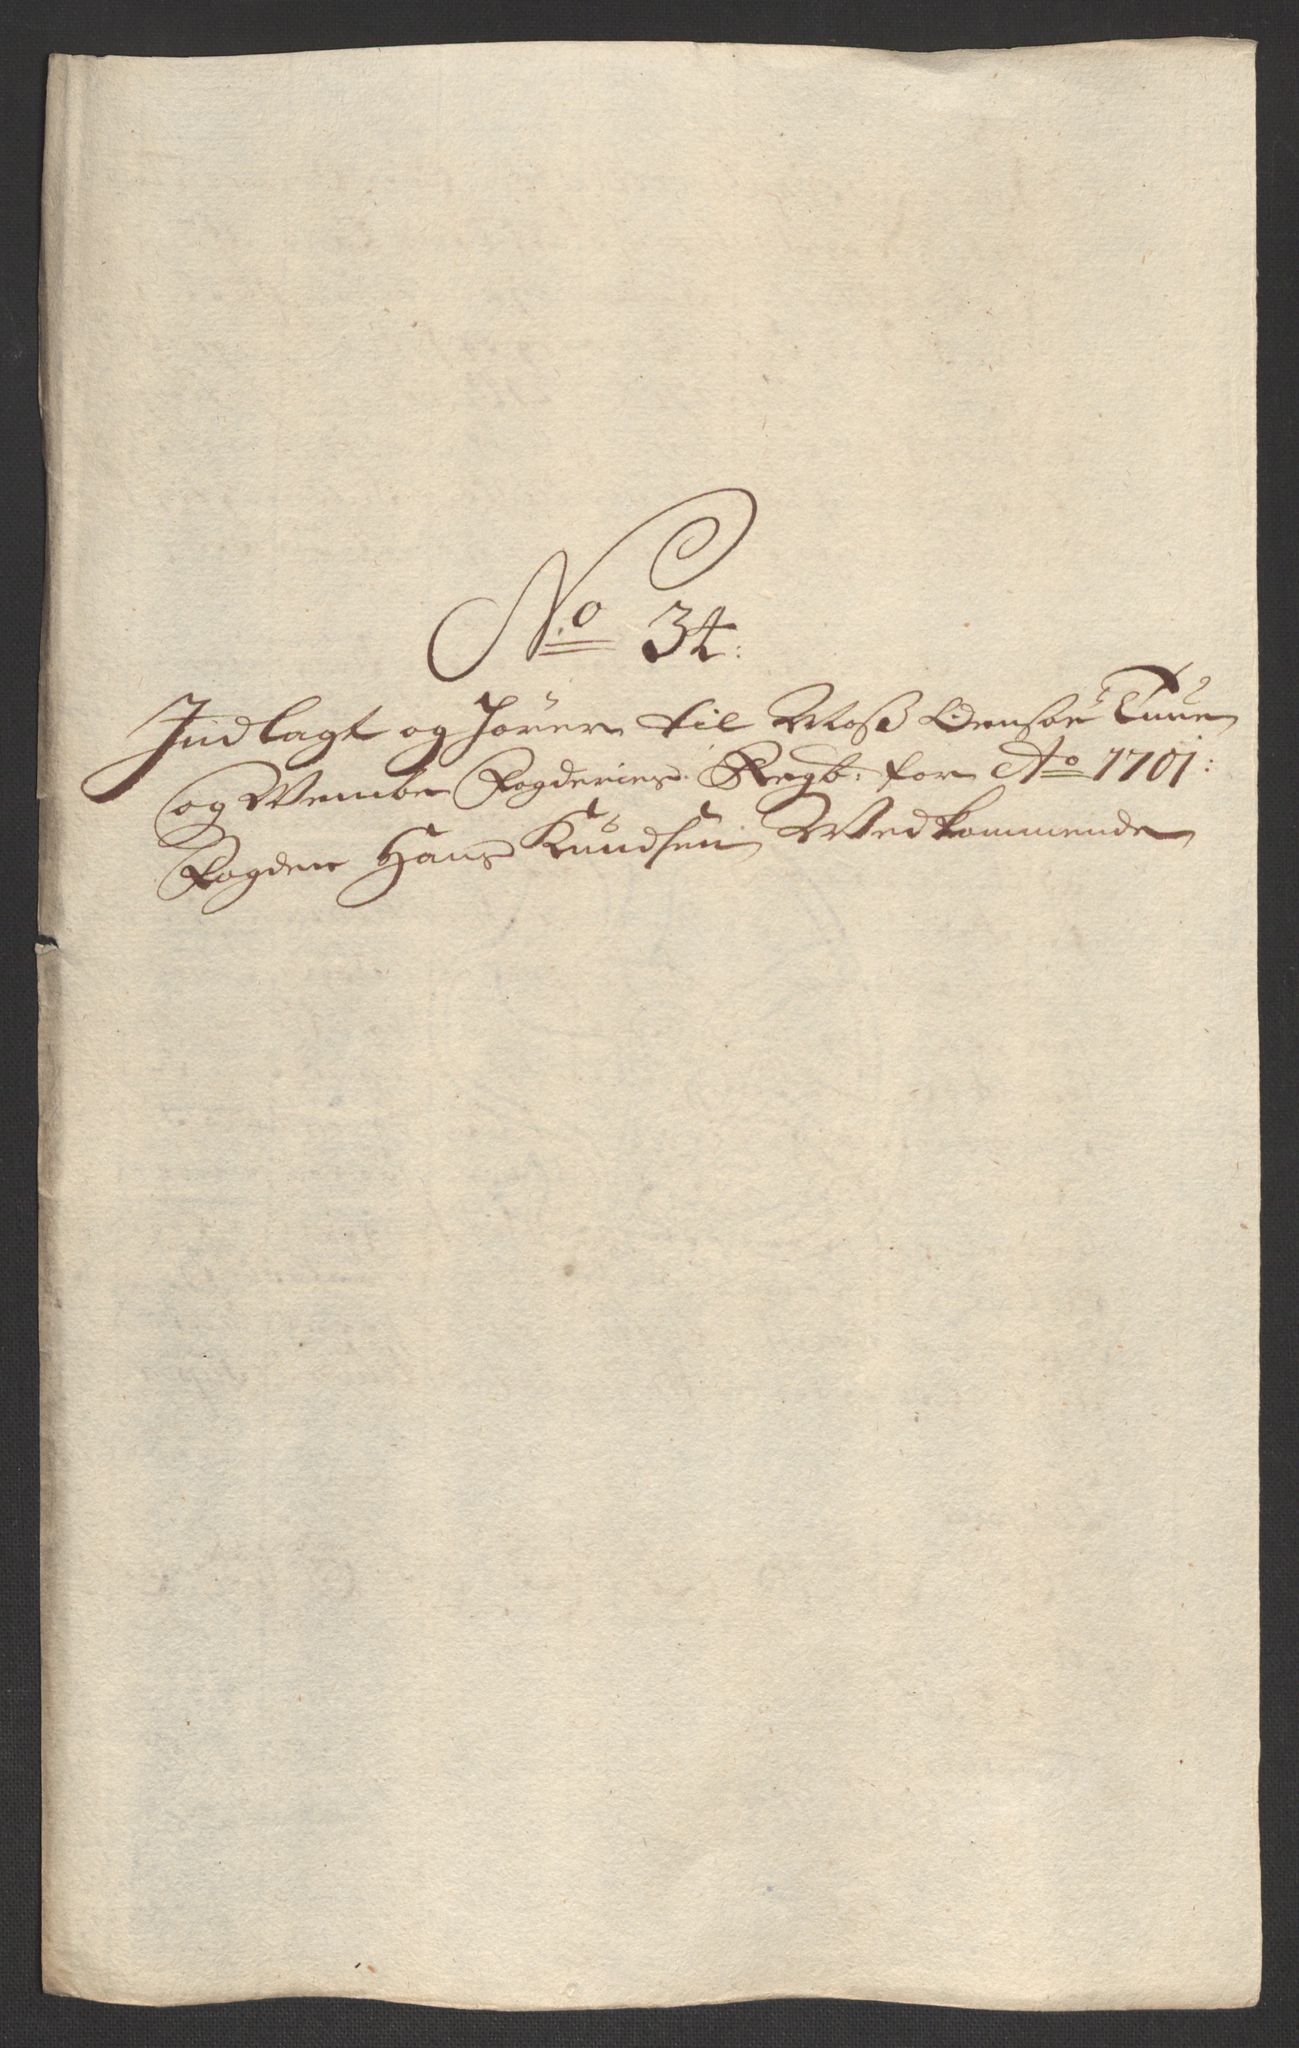 No 34:
Indlagt og hører til Moss Onsøe Tune
og Wembe Fogderies Regb: for Ao 1701:
Fogden Hans Knudsen Wedkommende